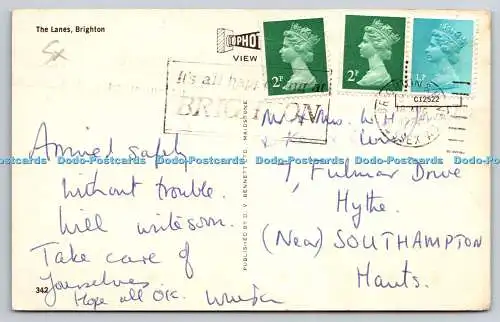 The Lanes, Brighton
PHOTO
VIEW
2P
2P
½P
It's all happening at
BRIGHTON
C12522
Arrived safely
without trouble.
Will write soon.
Take care of
yourselves
Hope all O.K.
342
PUBLISHED BY D. V. BENNETT LTD. MAIDSTONE
Mr & Mrs. W. H.
7, Fulmar Drive
Hythe.
(Near) SOUTHAMPTON
Hants.
Dodo-Postcards Dodo-Postcards Dodo-Postcards Dodo-Postcards Dodo-Postcards Dodo-Postcards